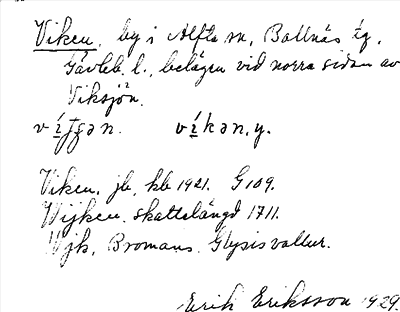 Viken, by i Alfta sn, Bollnäs tg.
Gävleb. l., belägen vid norra sidan av
Viksjön.
víʃʃən. víkən, y.
Viken, jb, kb 1921. G 109.
Wijken, skattelängd 1711.
Wjk, Bromans Glysisvallur.
Erik Eriksson 1929.